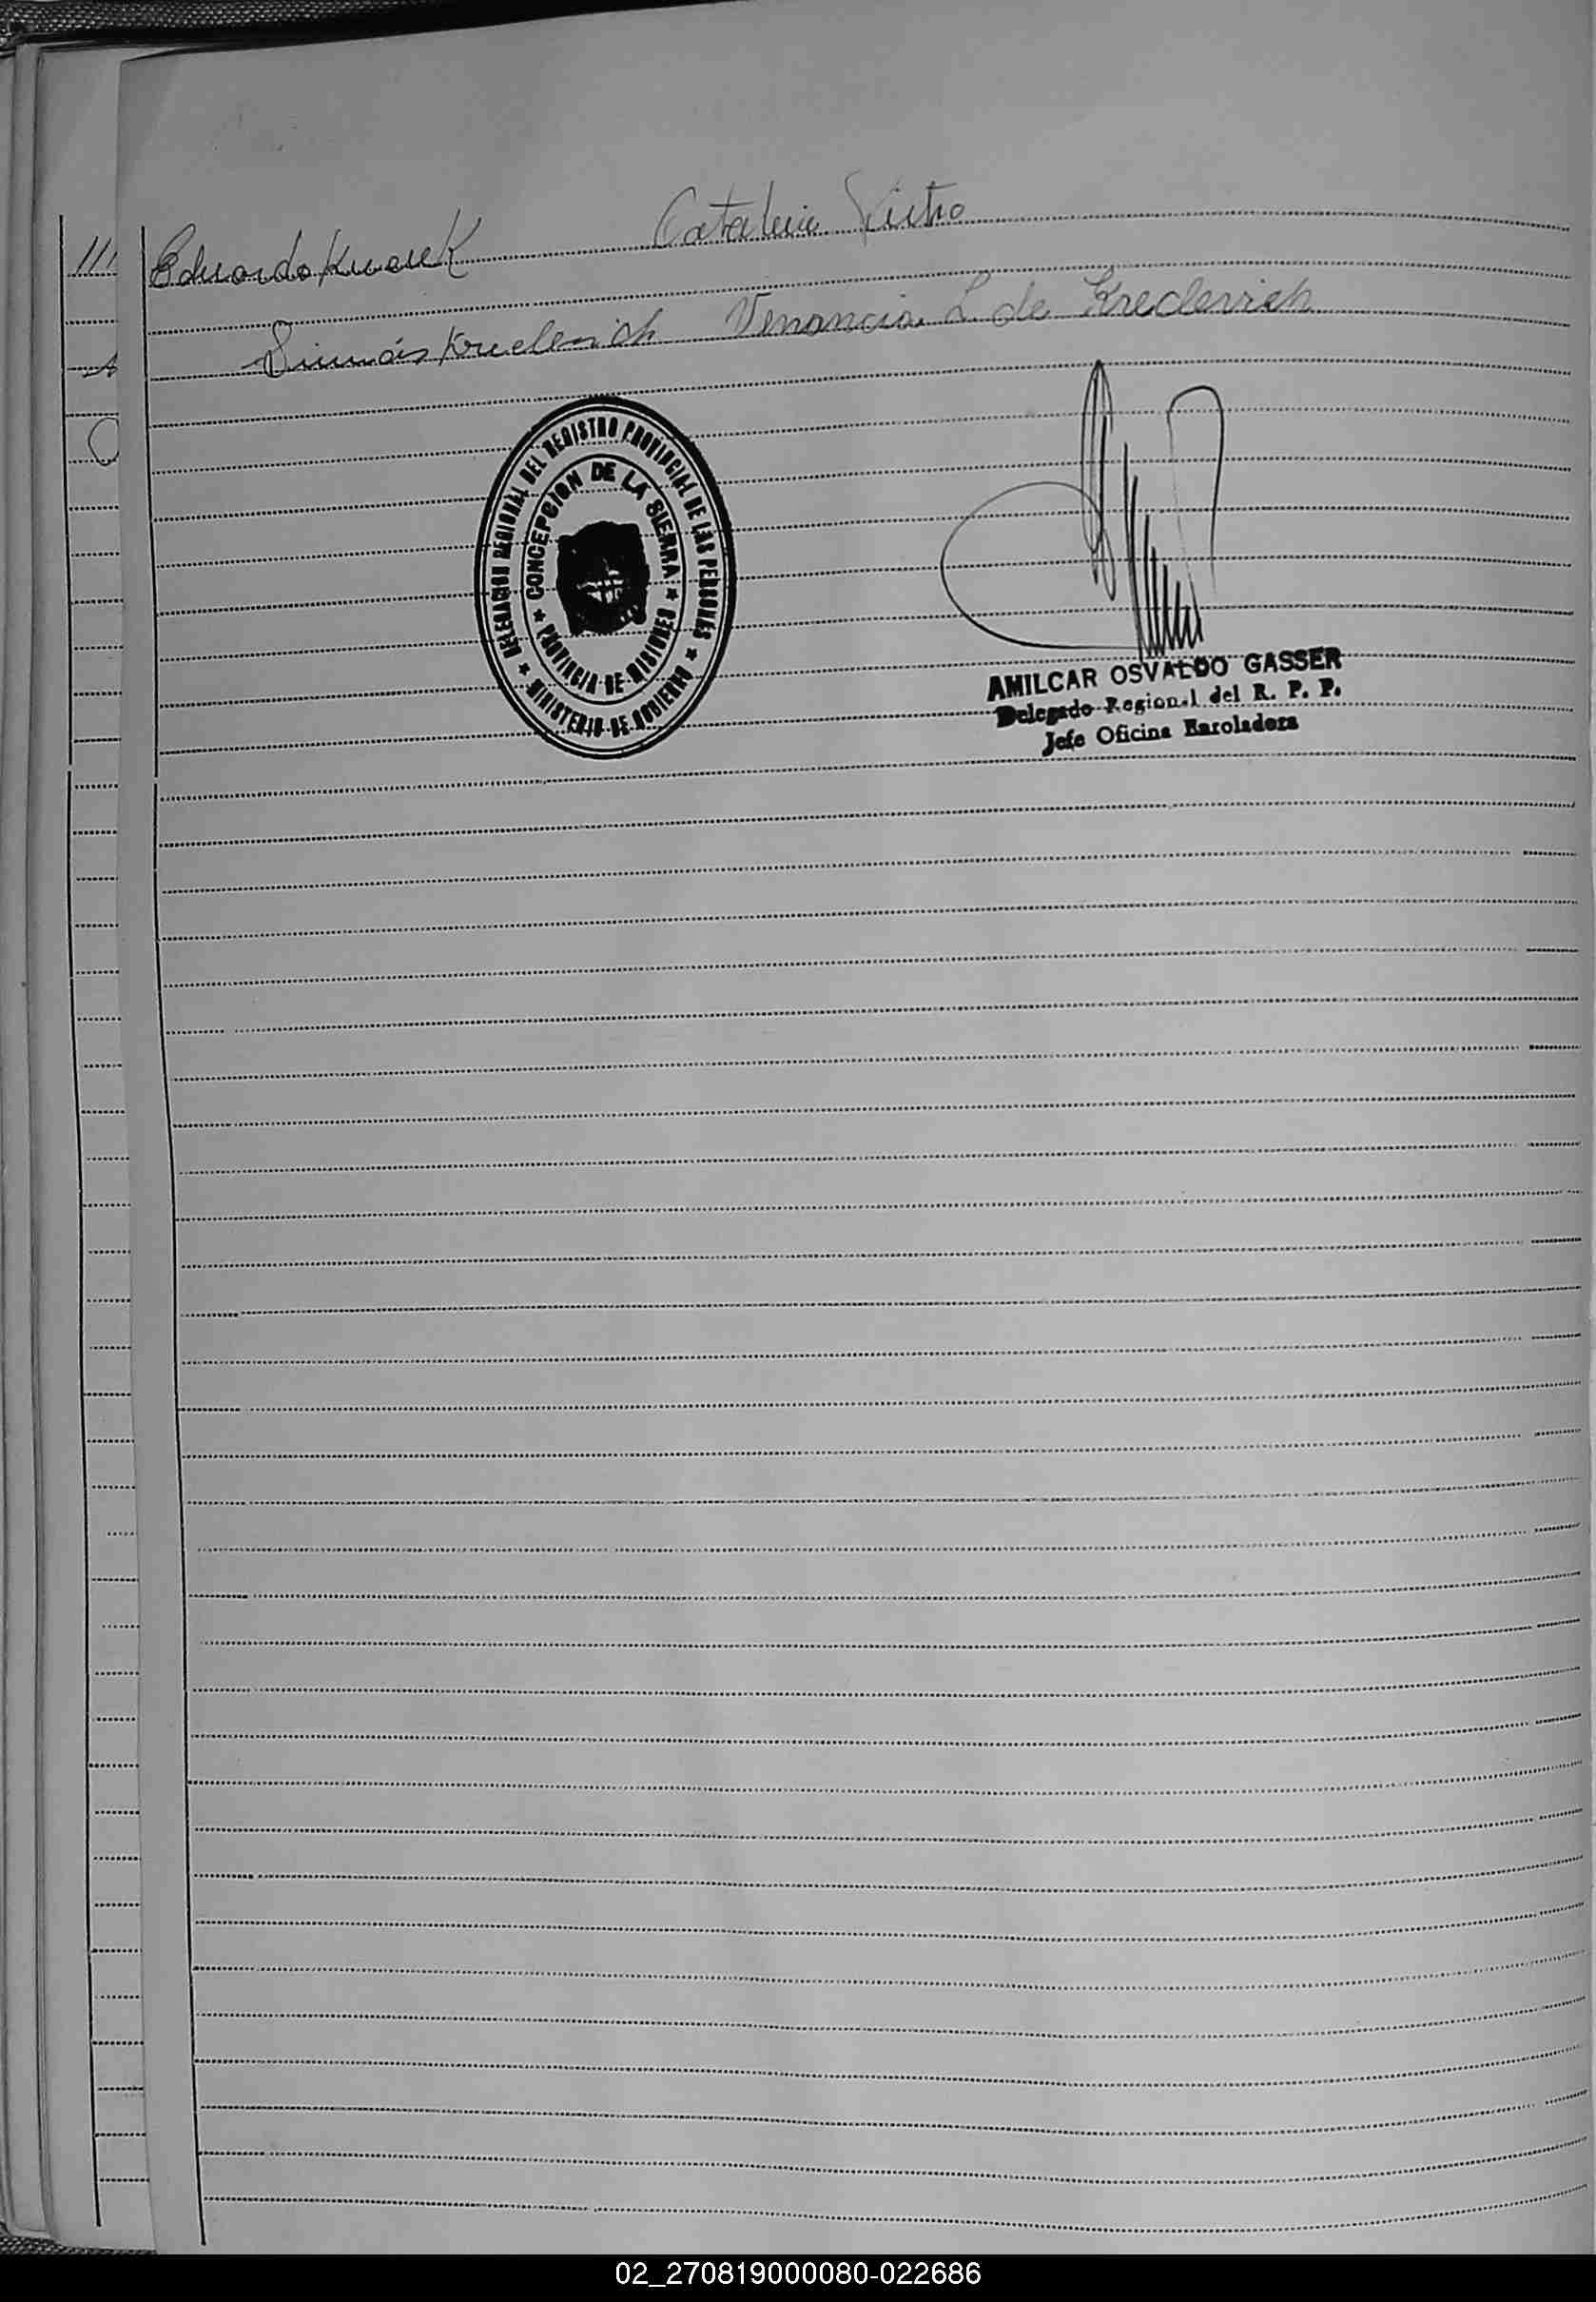 ///
Eduardo Kwarek Catalina
Dimás Krederich Venancia L. de Krederich
DELEGACION REGIONAL DEL REGISTRO PROVINCIAL DE LAS PERSONAS
★ MINISTERIO DE GOBIERNO ★
★ CONCEPCION DE LA SIERRA ★
PROVINCIA DE MISIONES
AMILCAR OSVALDO GASSER
Delegado Regional del R. P. P.
Jefe Oficina Enroladora
02_270819000080-022686